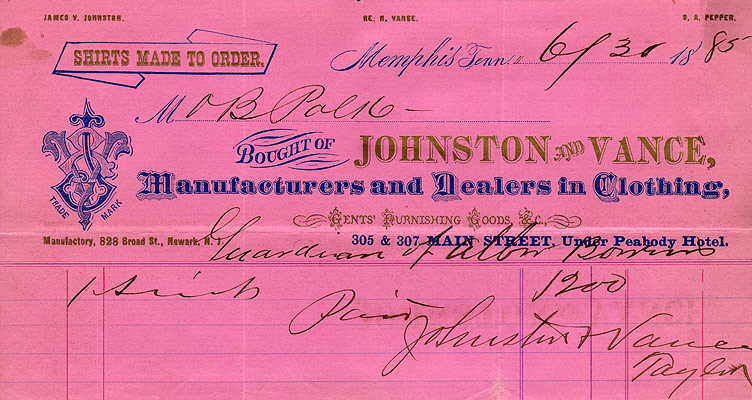 JAMES V. JOHNSTON. RE. H. VANCE. S. A. PEPPER.
SHIRTS MADE TO ORDER.
Memphis Tenn. 6/30 1885
M O B Polk
BOUGHT OF JOHNSTON AND VANCE,
Manufacturers and Dealers in Clothing,
TRADE MARK
GENTS' FURNISHING GOODS, &C.,
Manufactory, 828 Broad St., Newark, N. J. 305 & 307 MAIN STREET, Under Peabody Hotel.
Guardian of
1 1200
Paid
Johnston & Vance
Taylor